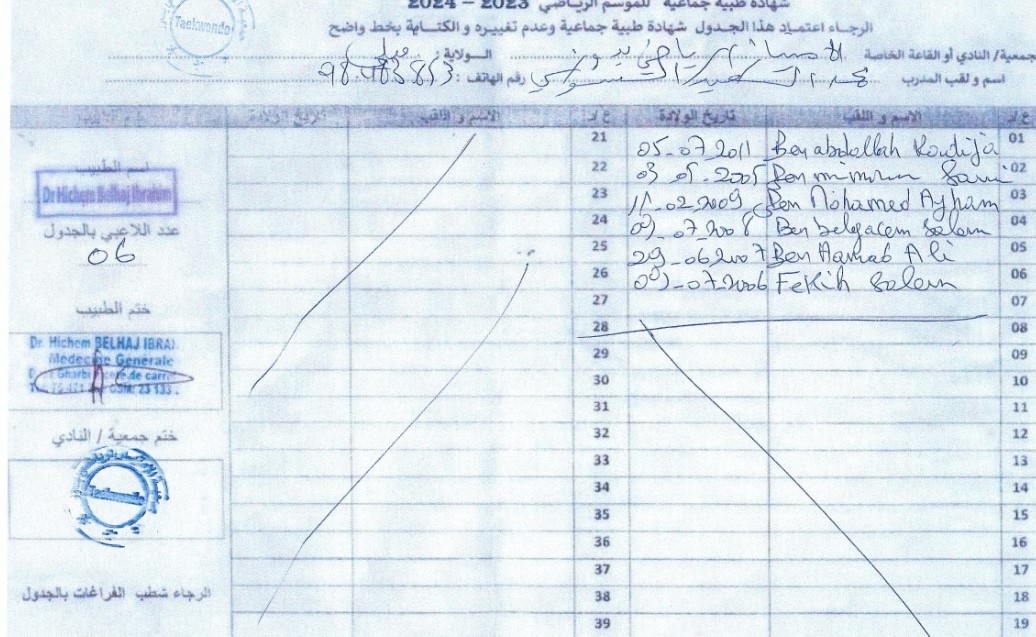 شهادة طبية جماعية للموسم الرياضي 2023 – 2024
Taekwondo
الرجاء اعتماد هذا الجدول شهادة طبية جماعية وعدم تغييره و الكتابة بخط واضح
جمعية/ النادي أو القاعة الخاصة الولاية :
اسم و لقب المدرب رقم الهاتف :
ع/د الاسم و اللقب تاريخ الولادة ع/د الاسم و اللقب تاريخ الولادة
01 Ben abdallah 05-07-2011 21
02 Ben mimoun Sami 03-05-2005 22
03 Ben Mohamed Ayham 11-02-2009 23
04 Ben belgacem Salem 09-07-2008 24
05 Ben Hamab Ali 29-06-2007 25
06 Fekih Salem 09-07-2006 26
07 27
08 28
09 29
10 30
11 31
12 32
13 33
14 34
15 35
16 36
17 37
18 38
19 39
اسم الطبيب
Dr Hichem Belhaj Ibrahim
عدد اللاعبي بالجدول
06
ختم الطبيب
Dr. Hichem BELHAJ IBRA
Medecine Generale
ختم جمعية / النادي
الرجاء شطب الفراغات بالجدول